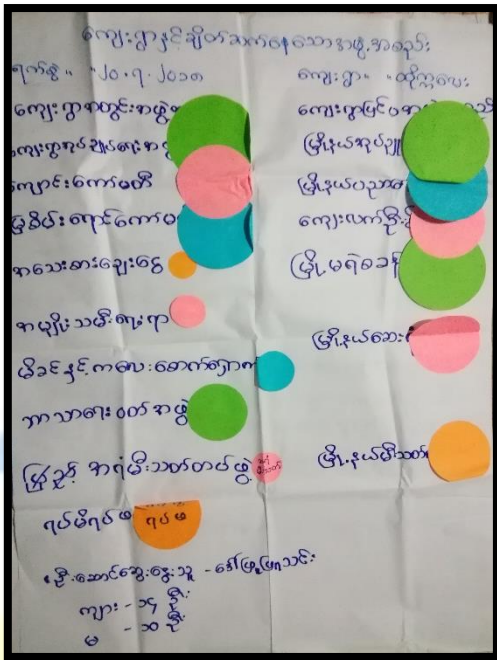 ကျေးရွာနှင့်ချိတ်ဆက်နေသောအဖွဲ့အစည်း
ရက်စွဲ - ၂၀.၇.၂၀၁၈
ကျေးရွာ -
ကျေးရွာတွင်းအဖွဲ့
ကျေးရွာအုပ်ချုပ်ရေး
ကျောင်းကော်မတီ
မြစိမ်းရောင်ကော်မ
အသေးစားချေးငွေ
အမျိုးသမီးရေးရာ
မိခင်နှင့်ကလေးစောက်ရှောက်
ဘာသာရေးဝတ်အဖွဲ့
အရံမီးသတ်တပ်ဖွဲ့
အရံမီးသတ်
ရပ်မိရပ်ဖ ရပ်ဖ
ကျေးရွာပြင်ပ
မြို့နယ်အုပ်ချုပ်
မြို့နယ်ပညာရေး
ကျေးလက်ဦးစီး
မြို့မရဲစခန်း
မြို့နယ်ဆေး
မြို့နယ်မီးသတ်
ဦးဆောင်ဆွေးနွေးသူ - ဒေါ်
ကျား - ၁၄ ဦး
မ - ၁၀ ဦး